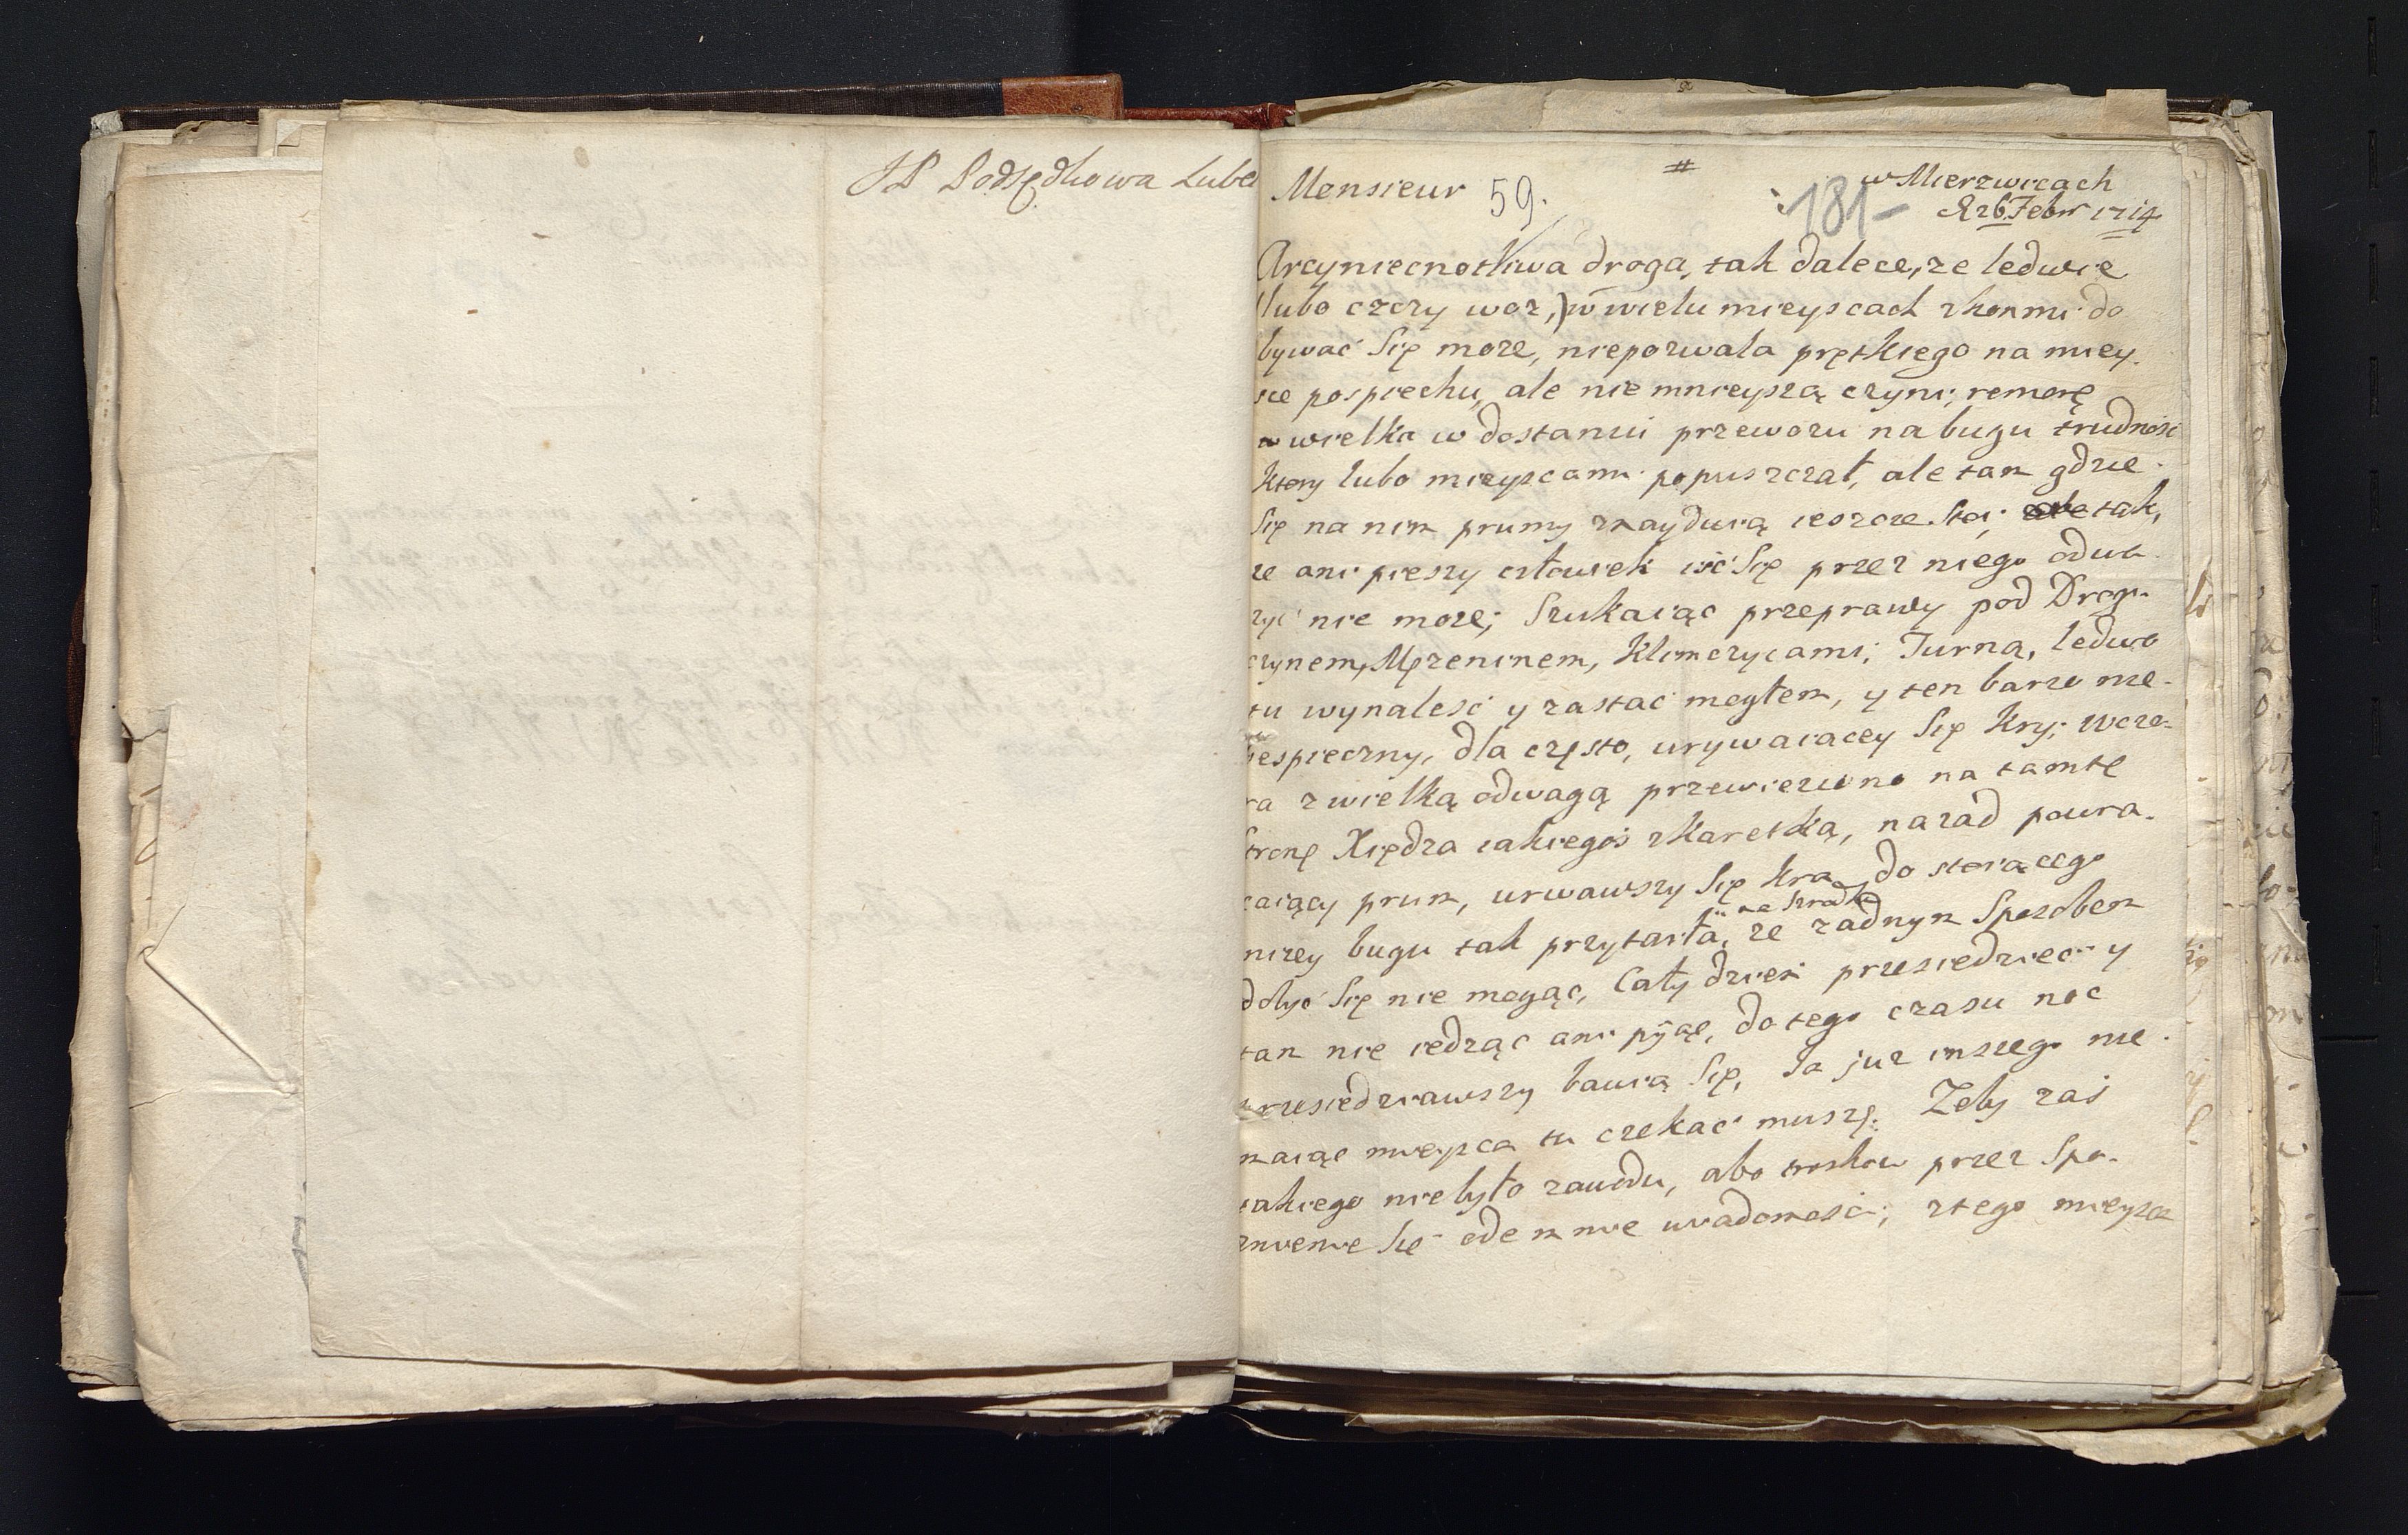 JP Podsędkowa Lubel
#
Monsieur 59.
w Mierzwicach
181 d 26 Febr 1714
Arcyniecnotliwa droga, tak dalece, ze ledwie
(lubo czczy woz,) w wielu mieyscach zkonmi do
bywać się moze, niepozwala prętkiego na miey.
sce pospiechu, ale nie mnieyszą czyni remorę
wielka w dostaniu przewozu na bugu trudnosc
ktory lubo mieyscami popuszczał, ale tam gdzie
się na nim prumy znayduią ieszcze stoi tak,
ze ani pieszy człowiek iść się przez niego odwa
zyć nie moze; Szukaiąc przeprawy pod Drogi
czynem, Mężeninem, Klimczycami, Turną, ledwo
tu wynalesć y zastać mogłem, y ten barzo nie
bespieczny, dla często, urywaiącey się kry; wczo-
ra z wielką odwagą przewieziono na tamtę
stronę Xiędza iakiegoś zkaretką, nazad powra.
caiący prum, urwawszy się kra do stoiącego
nizey bugu tak przytarła, ze zadnym sposobem
na srzodku
dobyć się nie mogąc, Cały dzień przesiedzieć y
tam nie iedząc ani pijąc, do tego czasu noc
przesiedziawszy bawią się, Ja już inszego nie
maiąc mieysca tu czekać muszę. Zeby zaś
iakiego niebyło zawodu, abo troskow przez spo.
znienie się odemnie wiadomosci, ztego mieysca